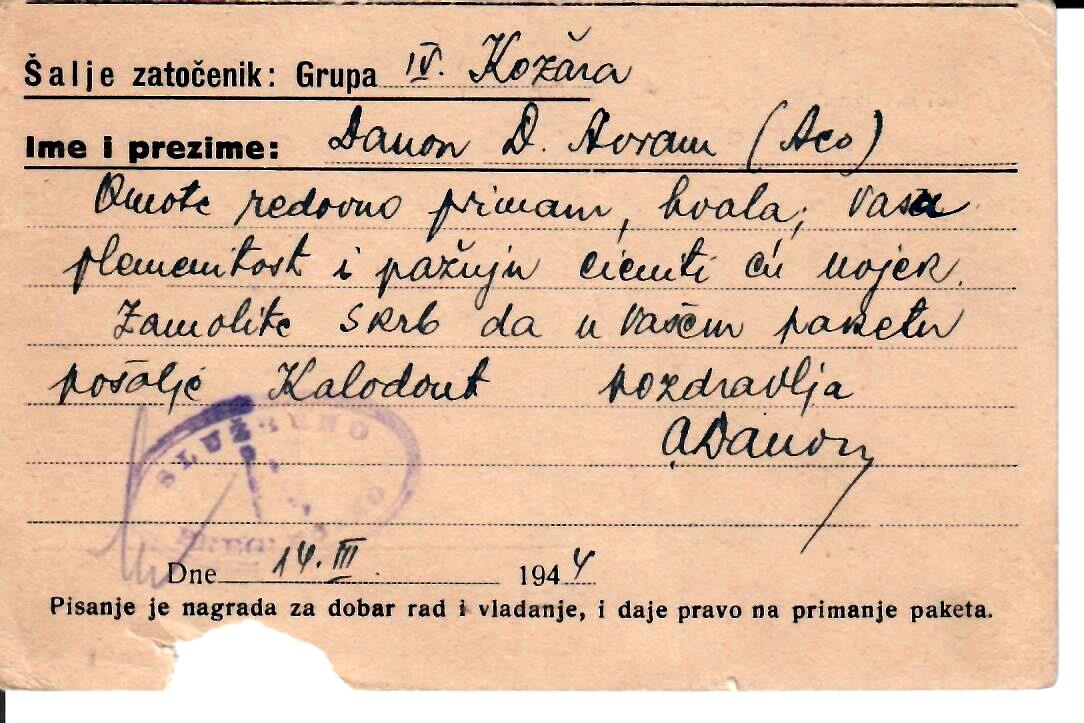 Šalje zatočenik: Grupa IV. Kožara
Ime i prezime: Danon D. Avram (Aco)
Omote redovno primam, hvala, vašu
plemenitost i pažnju cieniti ću uvjek.
Zamolite Skrb da u vašem paketu
pošalje Kalodont pozdravlja
ADanon
SLUŽBENO
Dne 14. III. 1944
Pisanje je nagrada za dobar rad i vladanje, i daje pravo na primanje paketa.